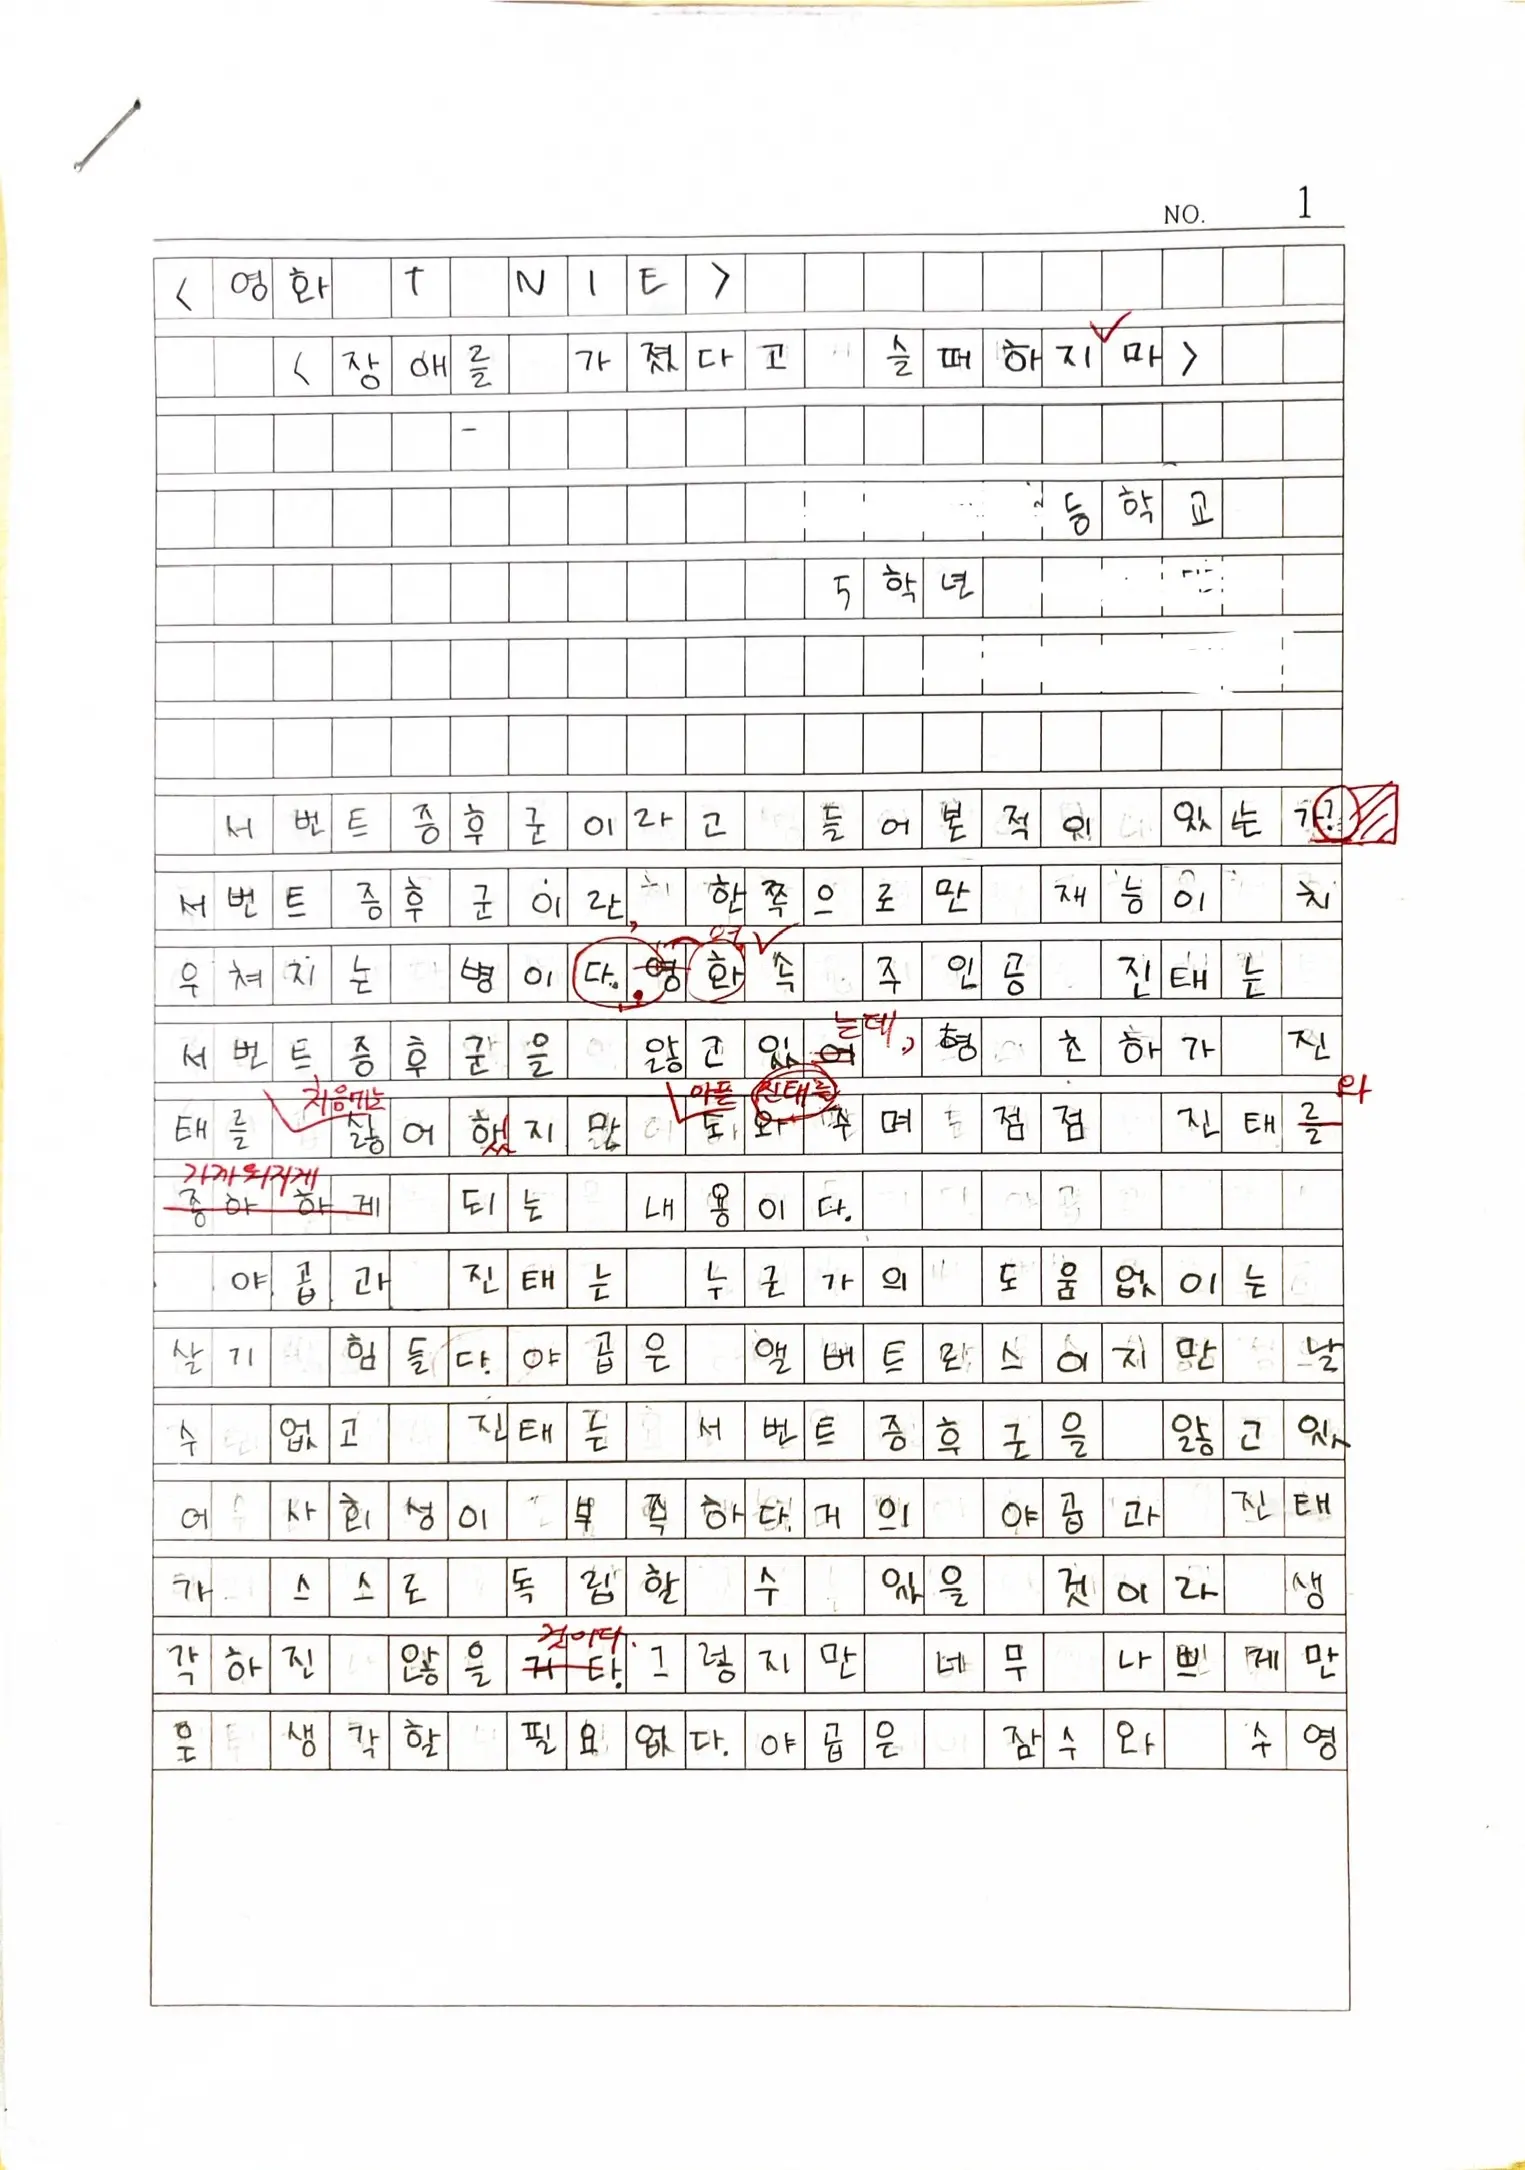 NO. 1
<영화 T NIE>
<장애를 가졌다고 슬퍼하지마>
등학교
5학년
서번트증후군이라고 들어본적이 있는가?
서번트증후군이란, 한쪽으로만 재능이 치
여
우쳐지는 병이다. 영화속 주인공 진태는
는데,
서번트증후군을 앓고있어 형 초하가 진
처음에는 아픈 진태를 와
태를 싫어했지만 도와주며 점점 진태를
가까워지게
좋아하게 되는 내용이다.
야곱과 진태는 누군가의 도움없이는
살기 힘들다. 야곱은 앨버트로스이지만 날
수 없고 진태는 서번트증후군을 앓고있
어 사회성이 부족하다. 거의 야곱과 진태
가 스스로 독립할 수 있을 것이라 생
것이다.
각하진 않을거다. 그렇지만 네무 나쁘게만
생각할 필요없다. 야곱은 잠수와 수영